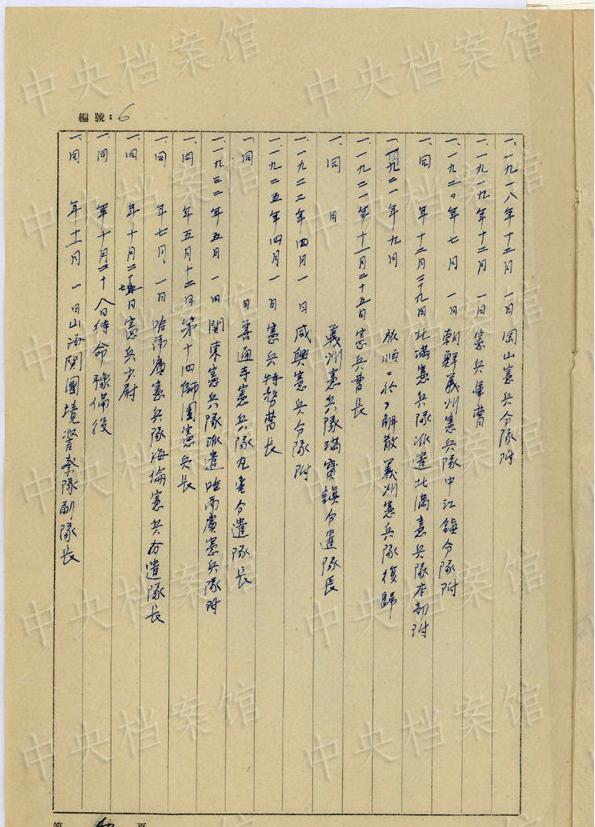 編號：6
一、一九一八年十二月 一日 岡山憲兵分隊附
一、一九一九年十二月 一日 憲兵軍曹
一、一九二〇年七月 一日 朝鮮義州憲兵隊中江鎮分隊附
一、同 年十二月二十九日 北満憲兵隊派遣北満憲兵隊本部附
一、一九二一年九月 旅順ニ於テ解散義州憲兵隊復歸
一、一九二一年十一月二十五日 憲兵曹長
一、同 日 義州憲兵隊満寳鎮分遣隊長
一、一九二二年四月 一日 咸興憲兵分隊附
一、一九二五年四月 一日 憲兵特務曹長
一、同 日 善通寺憲兵隊丸亀分遣隊長
一、一九三二年五月 一日 関東憲兵隊派遣哈爾賓憲兵隊附
一、同 年五月十二日 第十四師団憲兵長
一、同 年七月 一日 哈爾賓憲兵隊海倫憲兵分遣隊長
一、同 年十月二十七日 憲兵少尉
一、同 年十月二十八日 待命豫備役
一、同 年十二月 一日 山海関國境警察隊副隊長
第 頁
中央档案馆
中央档案馆
中央档案馆
中央档案馆
中央档案馆
中央档案馆